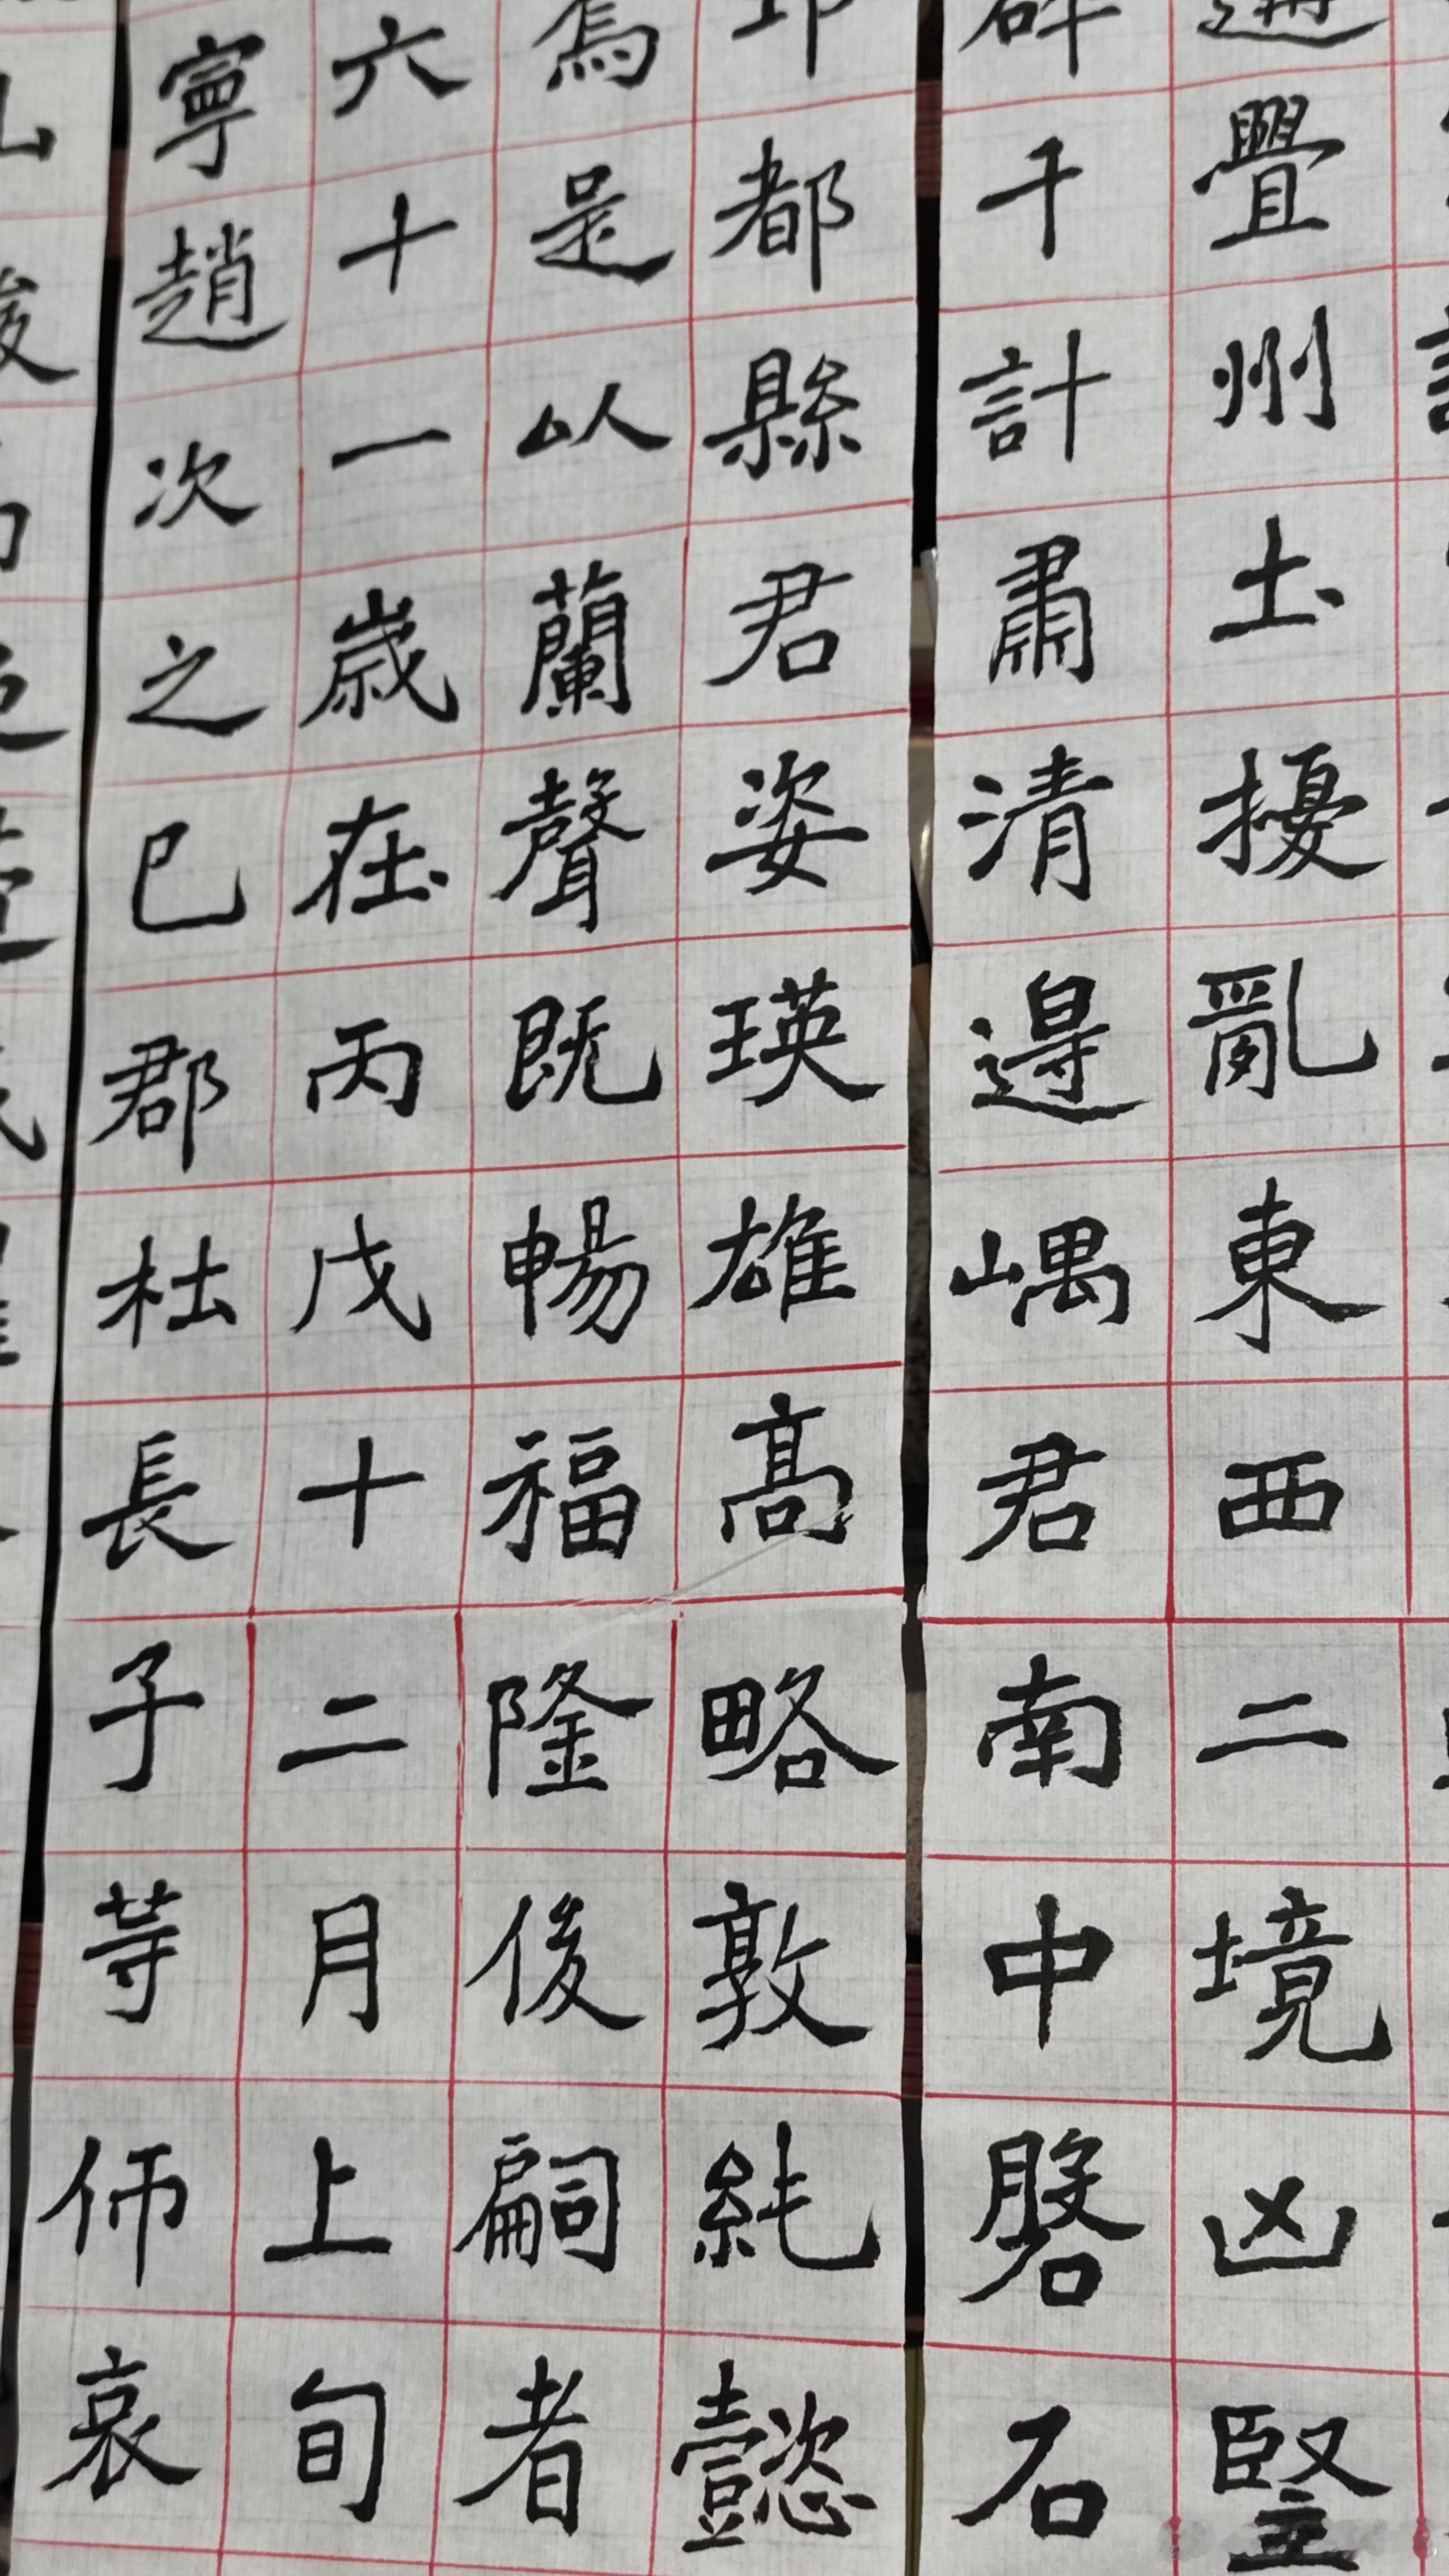 遘舋州土擾亂東西二境凶豎
碎千計肅清邊嵎君南中磐石
邛都縣君姿瑛雄高略敦純懿
焉是以蘭聲既暢福隆後嗣者
六十一歲在丙戌十二月上旬
寧趙次之巴郡杜長子等師哀